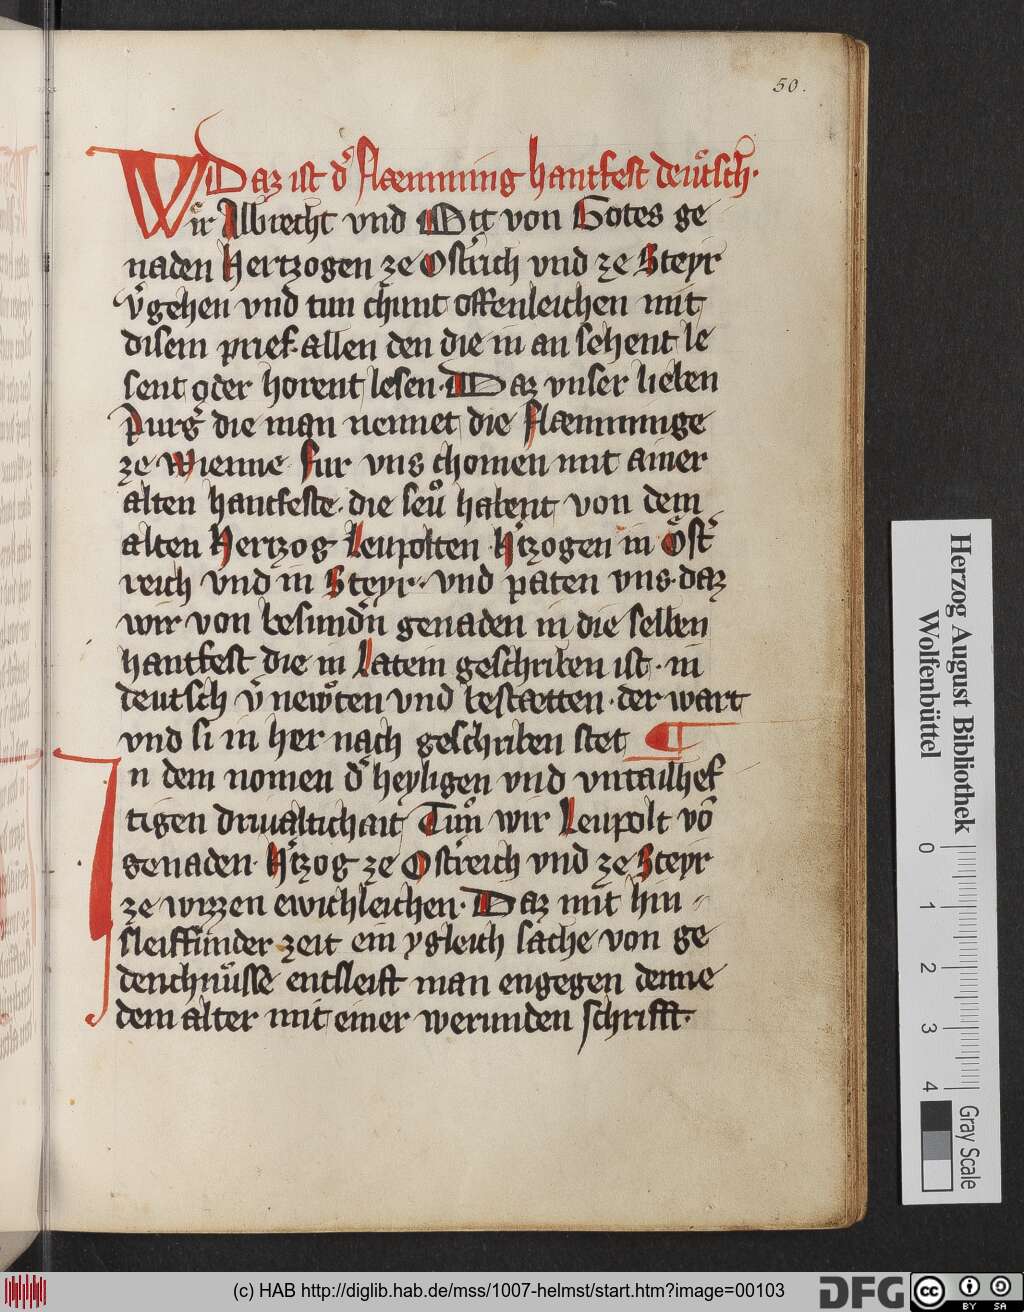 50.
Daz ist d᾽ flaemming hantfest deutsch·
Wir Albrecht vnd Ott von Gotes ge
naden Hertzogen ze Ostrich vnd ze Steyr
v᾽gehen vnd tun chunt offenleichen mit
disem prief· allen den die in an sehent le
sent oder horent lesen· Daz vnser lieben
Purg᾽ die man nennet die flaemminge
ze wienne fur vns chomen mit ainer
alten hantfeste· die seu habent von dem
alten Hertzog Leupolten H᾽tzogen in Öst᾽
reich vnd in Steyr· vnd paten vns· daz
wir von besund᾽n genaden in die selben
hantfest die in Latein geschriben ist· in
deutsch v᾽newͦten vnd bestaetten· der wart
vnd si in her nach geschriben stet ¶
In dem nomen d᾽ heyligen vnd vntailhef
tigen driualtichait Tuͦn wir Leupolt vō
genaden· H᾽tzog ze Ostreich vnd ze Steyr
ze wizzen ewichleichen· Daz mit hin
sleiffunder zeit ein ygleich sache von ge
denchnuͦsse entsleift man engegen denne
dem alter mit einer werunden schrifft·
Herzog August Bibliothek
Wolfenbüttel
0 1 2 3 4
Gray Scale
(c) HAB http://diglib.hab.de/mss/1007-helmst/start.htm?image=00103
DFG
cc BY SA